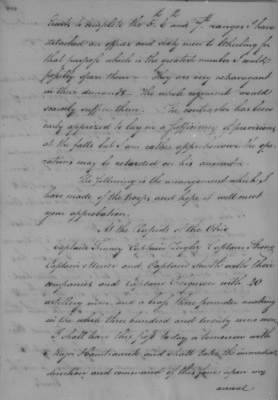 to complete the 5, 6 and 7th ranges I have
detached an officer and sixty men to Wheeling for
that purpose which is the greatest number I could
possibly spare them — They are very extravagant
in their demands. The whole regiment would
scarcely suffice them. The contractor has been
early apprized to lay on a sufficiency of provisions
at the falls but I am rather apprehensive the ope-
rations may be retarded on his account.
The following is the arrangement which I
have made of the troops and hope it will meet
your approbation.
At the Rapids of the Ohio
Captain Finney Captain Zeigler Captain Strong
Captain Mercer and Captain Smith with their
companies and Captain Ferguson with 20
artillery men and a brass three pounder making
in the whole three hundred and twenty nine men
I shall leave this post today or tomorrow with
Major Hamtramck and shall take the immediate
direction and command of this force upon my
arrival